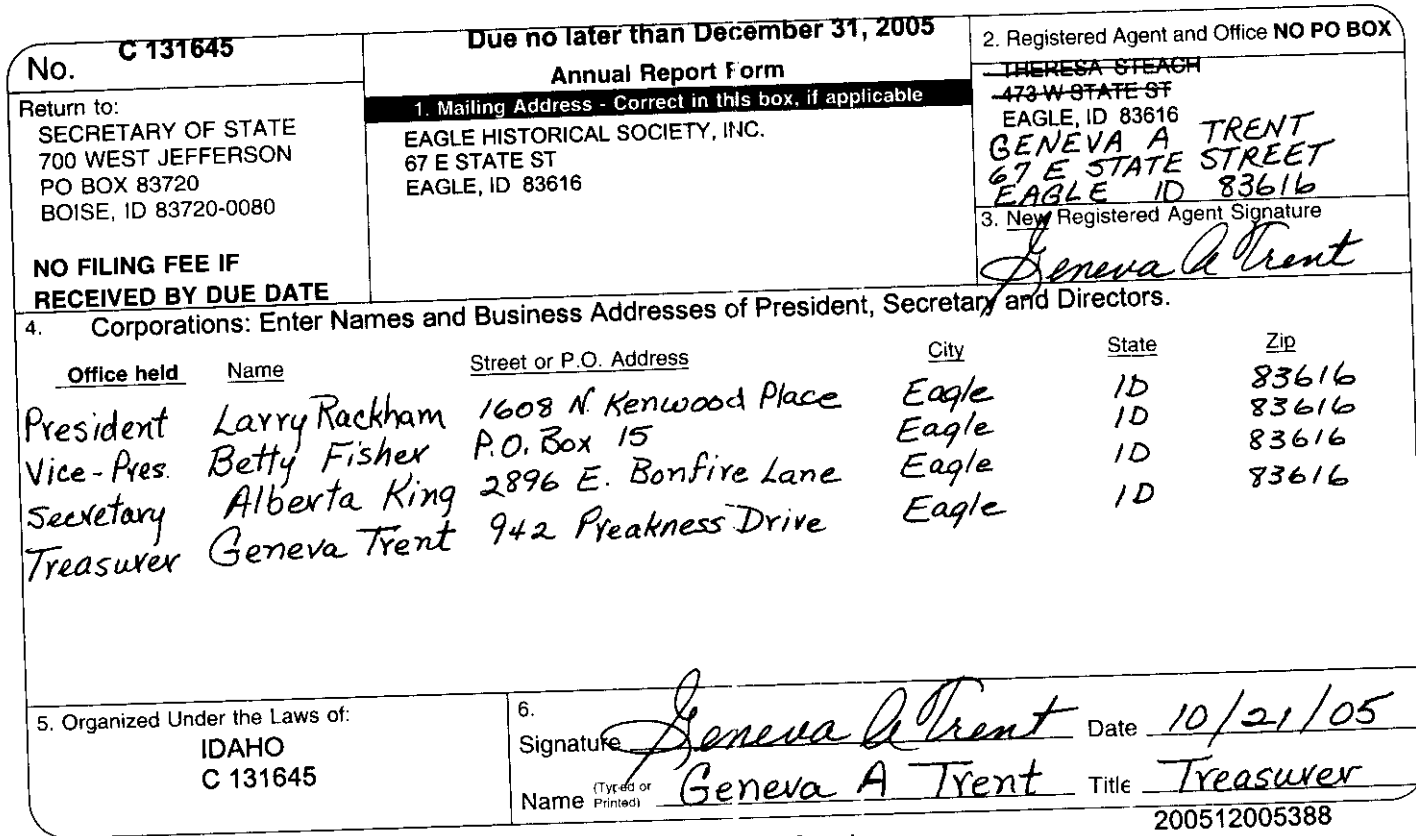 No. C 131645
Due no later than December 31, 2005
Annual Report Form
Return to:
SECRETARY OF STATE
700 WEST JEFFERSON
PO BOX 83720
BOISE, ID 83720-0080
NO FILING FEE IF
RECEIVED BY DUE DATE
1. Mailing Address - Correct in this box, if applicable
EAGLE HISTORICAL SOCIETY, INC.
67 E STATE ST
EAGLE, ID 83616
2. Registered Agent and Office NO PO BOX
THERESA STEACH
473 W STATE ST
EAGLE, ID 83616
GENEVA A TRENT
67 E STATE STREET
EAGLE ID 83616
3. New Registered Agent Signature
Geneva A Trent
4. Corporations: Enter Names and Business Addresses of President, Secretary and Directors.
Office held Name Street or P.O. Address City State Zip
President Larry Rackham 1608 N. Kenwood Place Eagle ID 83616
Vice-Pres. Betty Fisher P.O. Box 15 Eagle ID 83616
Secretary Alberta King 2896 E. Bonfire Lane Eagle ID 83616
Treasurer Geneva Trent 942 Preakness Drive Eagle ID 83616
5. Organized Under the Laws of:
IDAHO
C 131645
6.
Signature Geneva A Trent Date 10/21/05
Name (Typed or Printed) Geneva A Trent Title Treasurer
200512005388